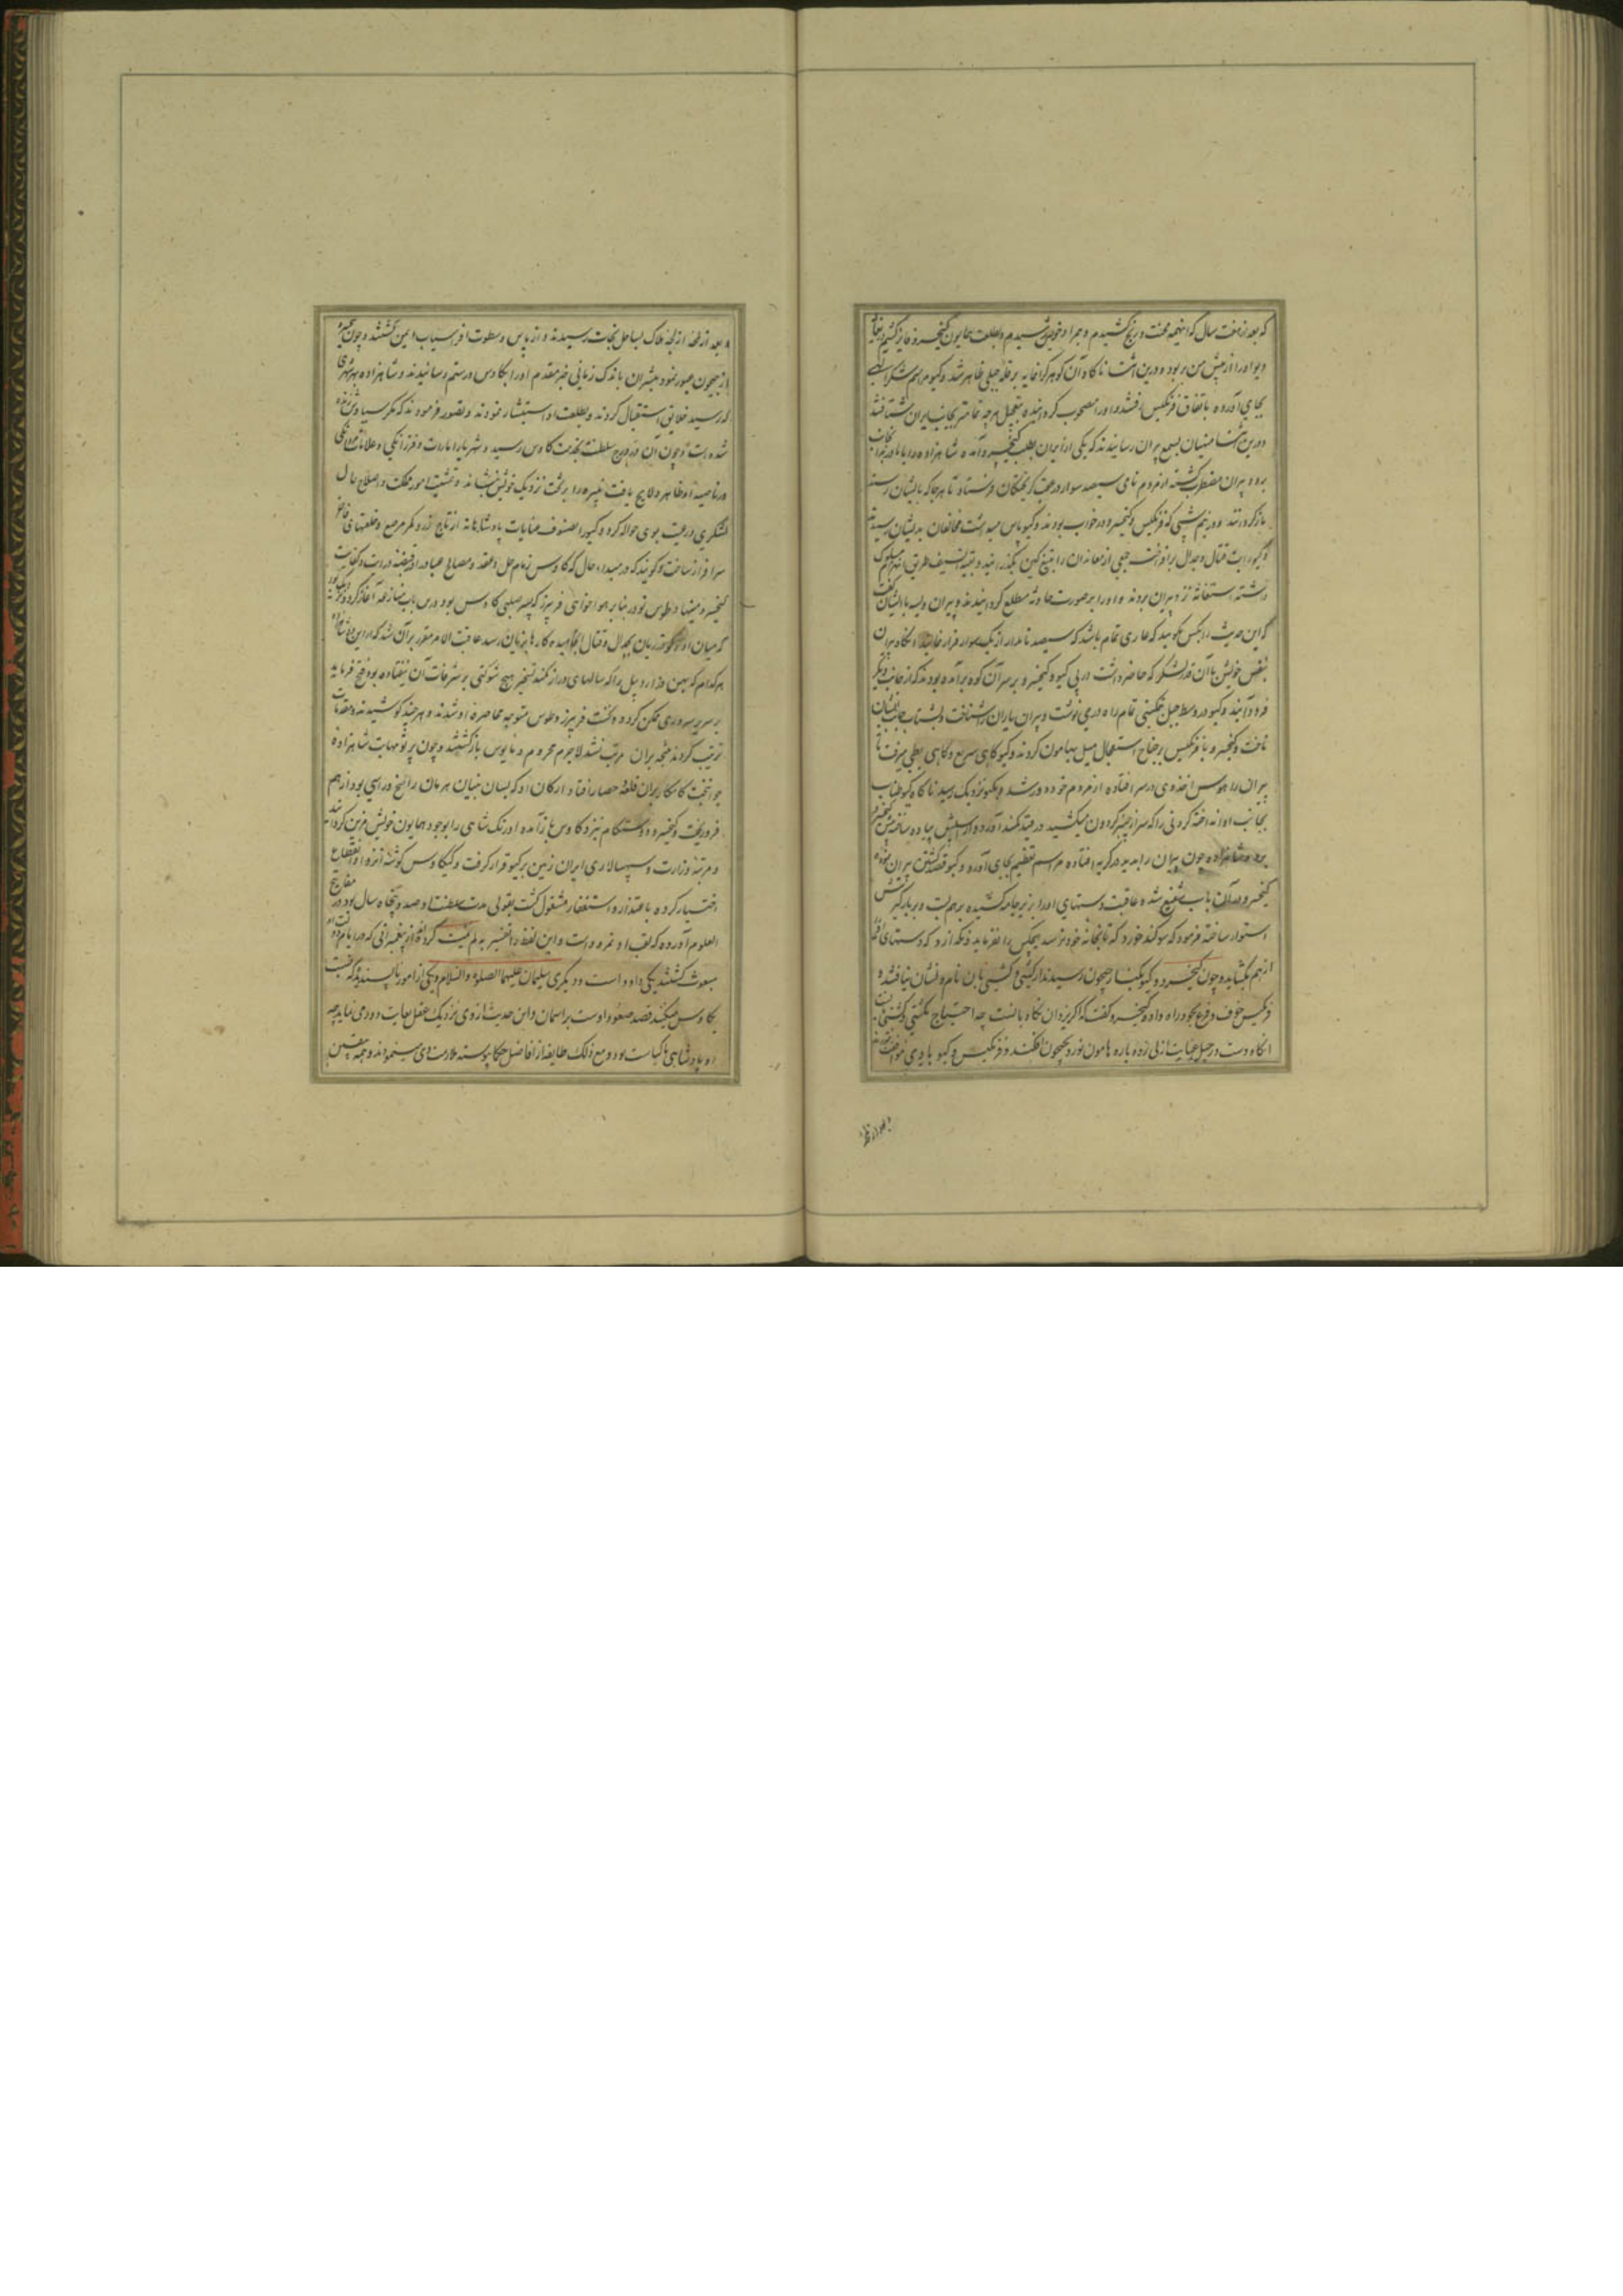 که بعد از هفت سال که اینهمه محنت و رنج کشیدم و جرا و خویش شنیدم و بطلعت همایون کیخسرو فایز کشتم
دیو او را از پیش من ربود و درین اثنا ناکاه آن کوهر کرانمایه بر قله جبلی ظاهر شد و کیو مراسم شکر الهی
بجای آورده باتفاق فرنکیس رفتند و او را مصحوب کردانیده بتعجیل هر چه تمامتر بجانب ایران شتافتند
درین اثنا منهیان بسمع پیران رسانیدند که یکی از ایران بطلب کیخسرو آمده شاهزاده را با مادر بجانب ایران
برد و پیران مضطرب کشته از مردم نامی سیصد سوار در عقب کریختکان فرستاد تا هر جا که بایشان رسند
بازکردانند و در نیم شبی که فرنکیس و کیخسرو در خواب بودند و کیو پاس میداشت مخالفان بدیشان رسیدند
و کیو رایت قتال و جدال برافراخت جمعی از معاندان را بتیغ کین بکذرانید و بقیة السیف طریق انهزام مسلوک
داشته استغاثه نزد پیران بردند و او را بر صورت حادثه مطلع کردانیدند و پیران ویسه با ایشان گفت
که این حدیث را بکس مکویید که عاری تمام باشد که سیصد نامدار از یک سوار فرار نمایند انکاه پیران
بنفس خویش با آن قدر لشکر که حاضر داشت در پی کیو و کیخسرو بر سر آن کوه برآمده بودند که از جانب دیکر
فرود آیند و کیو در وسط جبل تمکینی تمام راه در می نوشت و پیران یاران را شناخت بشتاب جانب ایشان
تافت و کیخسرو با فرنکیس بر جناح استعجال میل بهامون کردند و کیو کاهی سریع و کاهی بطی میرفت تا
پیران را هوس اخذ وی در سر افتاده از مردم خود دور شد و بکیو نزدیک رسید ناکاه کیو طناب
بجانب او انداخته کردنی را که سر از چنبر کردون میکشید در قید کمند آورد و از اسپش پیاده ساخته پیش کیخسرو
برد و شاهزاده چون پیران را بدید در کریه افتاده مراسم تعظیم بجای آورد و کیو قصد کشتن پیران نموده
کیخسرو در آن باب شفیع شده عاقبت دستهای او را از زیر جامه کشیده بر هم بست و بر بارکیرش
استوار ساخته فرمود که سوکند خورد که تا بخانه خود نرسد هیچکس را نفرماید و نکذارد که دستهای او را
از هم بکشاید و چون کیخسرو و کیو بکنار جیحون رسیدند از کشتی و کشتی بان نام و نشان نیافتند و
فرنکیس خوف و فزع بخود راه داده کیخسرو کفت که اکر یزدان نکاه بانست چه احتیاج بکشتی و کشتی بانست
انکاه دست در حبل عنایت ازلی زده باره هامون نورد بجیحون افکند و فرنکیس و کیو با وی موافقت نمودند
و بعد از لحظه از لجه هلاک بساحل نجات رسیدند و از باس و سطوت افراسیاب ایمن کشتند و چون کیخسرو
از جیحون عبور نمود مبشران باندک زمانی خبر مقدم او را بکاوس و رستم رسانیدند و شاهزاده بهر شهری
که رسید خلایق استقبال کردند و بطلعت او استبشار نمودند و تصور فرمودند که مکر سیاوش زنده
شده است و چون آن در درج سلطنت بخدمت کاوس رسید و شهریار امارات و فرزانکی و علامات مردانکی
در ناصیه او ظاهر و لایح یافت نبیره را بر تخت نزدیک خویش بنشاند و تمشیت امور مملکت و اصلاح حال
لشکری و رعیت بوی حواله کرد و کیو را بصنوف عنایات پادشاهانه از تاج زر و کمر مرصع و خلعتهای فاخر
سرافراز ساخت و کویند که در مبداء حال که کاوس زمام حل و عقد و مصالح عباد در قبضه درایت و کفایت
کیخسرو مینهاد طوس نوذر بنا بر هواخواهی فریبرز که پسر صلبی کاوس بود درین باب منازعه آغاز کرد و نزدیک بود
که میان او و کودرزیان بجدل و قتال انجامیده کارها بزیان رسد عاقبت الامر مقرر بر آن شد که از این دو شاهزاده
هر کدام که بهمن دز اردبیل را که سالهای دراز کمند تسخیر هیچ شوکتی بر شرفات آن نیفتاده بود فتح فرماید
بر سریر سروری ممکن کردد و نخست فریبرز و طوس متوجه محاصره او شدند و هر چند کوشیدند و مقدمات
ترتیب کردند نتیجه بر آن مرتب نشد لاجرم محروم و مایوس بازکشتند و چون پرتو مهابت شاهزاده
جوانبخت کامکار بر آن قلعه حصار افتاد ارکان او که بسان بنیان هرمان راسخ و راسی بود از هم
فرو ریخت و کیخسرو دوستکام نزد کاوس بازآمده اورنک شاهی را بوجود همایون خویش مزین کردانید
و مرتبه وزارت و سپهسالاری ایران زمین بر کیو قرار کرفت و کیکاوس کوشه انزوا و انقطاع
اختیار کرده باعتذار و استغفار مشغول کشت بقولی مدت سلطنت او صد و پنجاه سال بود در مفاتیح
العلوم آورده که لقب او نمره است و این لفظ را تفسیر به لم یمت کرده‌اند از پیغمبرانی که در ایام دولت او
مبعوث کشتند یکی داود است و دیکری سلیمان علیهما الصلوة والسلام و یکی از امور ناپسندیده که نسبت
بکاوس میکنند قصد صعود اوست بر آسمان و این حدیث از وی نزدیک عقل بغایت دور می نماید چه
او پادشاهی با کیاست بود و مع ذلک طایفه از افاضل حکما پیوسته ملازمت وی مینمودند و همه متیقن